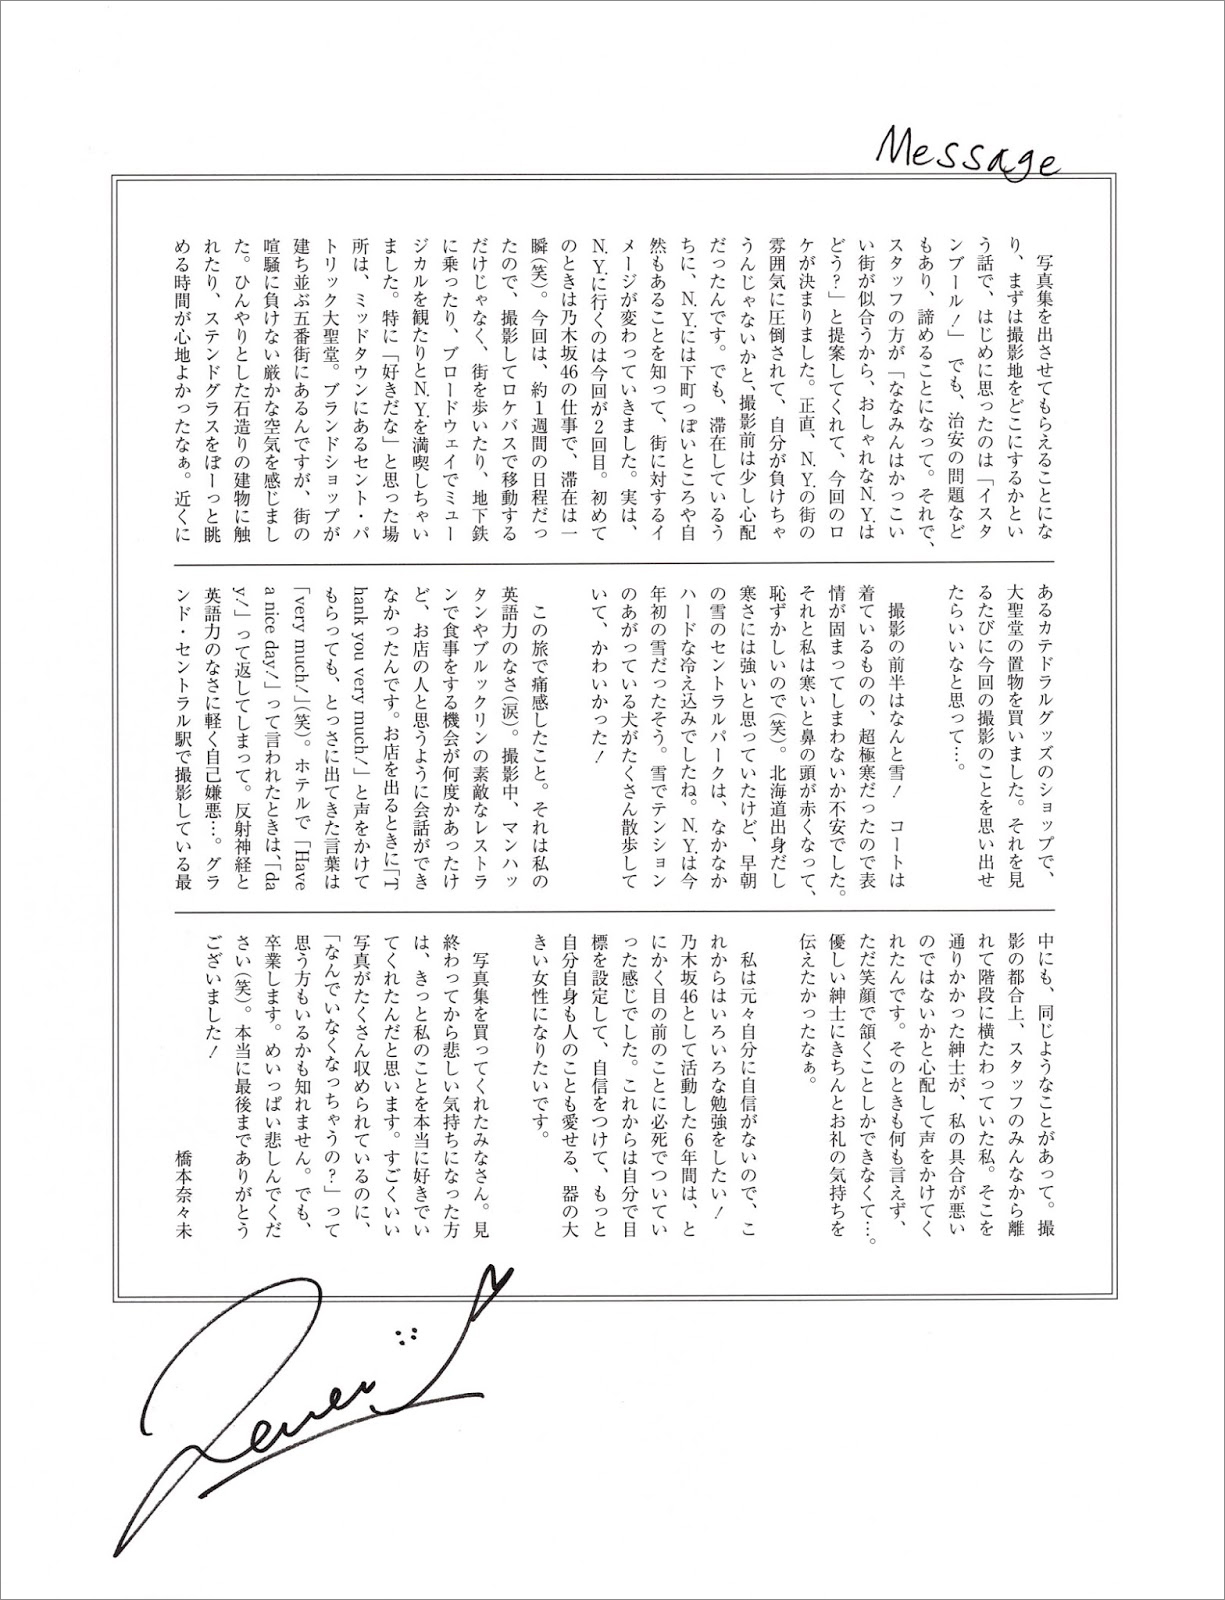 Message
写真集を出させてもらえることにな
り、まずは撮影地をどこにするかとい
う話で、はじめに思ったのは「イスタ
ンブール！」 でも、治安の問題など
もあり、諦めることになって。それで、
スタッフの方が「ななみんはかっこい
い街が似合うから、おしゃれなN.Y.は
どう？」と提案してくれて、今回のロ
ケが決まりました。正直、N.Y.の街の
雰囲気に圧倒されて、自分が負けちゃ
うんじゃないかと、撮影前は少し心配
だったんです。でも、滞在しているう
ちに、N.Y.には下町っぽいところや自
然もあることを知って、街に対するイ
メージが変わっていきました。実は、
N.Y.に行くのは今回が2回目。初めて
のときは乃木坂46の仕事で、滞在は一
瞬(笑)。今回は、約1週間の日程だっ
たので、撮影してロケバスで移動する
だけじゃなく、街を歩いたり、地下鉄
に乗ったり、ブロードウェイでミュー
ジカルを観たりとN.Y.を満喫しちゃい
ました。特に「好きだな」と思った場
所は、ミッドタウンにあるセント・パ
トリック大聖堂。ブランドショップが
建ち並ぶ五番街にあるんですが、街の
喧騒に負けない厳かな空気を感じまし
た。ひんやりとした石造りの建物に触
れたり、ステンドグラスをぼーっと眺
める時間が心地よかったなぁ。近くに
あるカテドラルグッズのショップで、
大聖堂の置物を買いました。それを見
るたびに今回の撮影のことを思い出せ
たらいいなと思って…。
撮影の前半はなんと雪！ コートは
着ているものの、超極寒だったので表
情が固まってしまわないか不安でした。
それと私は寒いと鼻の頭が赤くなって、
恥ずかしいので(笑)。北海道出身だし
寒さには強いと思っていたけど、早朝
の雪のセントラルパークは、なかなか
ハードな冷え込みでしたね。N.Y.は今
年初の雪だったそう。雪でテンション
のあがっている犬がたくさん散歩して
いて、かわいかった！
この旅で痛感したこと。それは私の
英語力のなさ(涙)。撮影中、マンハッ
タンやブルックリンの素敵なレストラ
ンで食事をする機会が何度かあったけ
ど、お店の人と思うように会話ができ
なかったんです。お店を出るときに「T
hank you very much！」と声をかけて
もらっても、とっさに出てきた言葉は
「very much！」(笑)。ホテルで「Have
a nice day！」って言われたときは、「da
y！」って返してしまって。反射神経と
英語力のなさに軽く自己嫌悪…。グラ
ンド・セントラル駅で撮影している最
中にも、同じようなことがあって。撮
影の都合上、スタッフのみんなから離
れて階段に横たわっていた私。そこを
通りかかった紳士が、私の具合が悪い
のではないかと心配して声をかけてく
れたんです。そのときも何も言えず、
ただ笑顔で頷くことしかできなくて…。
優しい紳士にきちんとお礼の気持ちを
伝えたかったなぁ。
私は元々自分に自信がないので、こ
れからはいろいろな勉強をしたい！
乃木坂46として活動した6年間は、と
にかく目の前のことに必死でついてい
った感じでした。これからは自分で目
標を設定して、自信をつけて、もっと
自分自身も人のことも愛せる、器の大
きい女性になりたいです。
写真集を買ってくれたみなさん。見
終わってから悲しい気持ちになった方
は、きっと私のことを本当に好きでい
てくれたんだと思います。すごくいい
写真がたくさん収められているのに、
「なんでいなくなっちゃうの？」って
思う方もいるかも知れません。でも、
卒業します。めいっぱい悲しんでくだ
さい(笑)。本当に最後までありがとう
ございました！
橋本奈々未